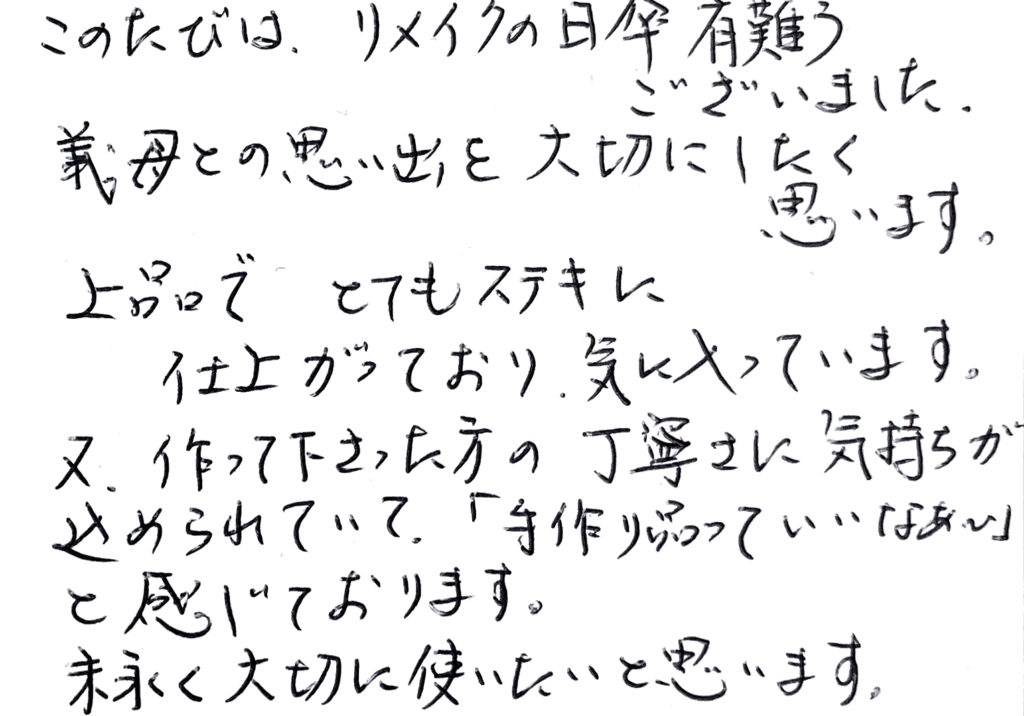 このたびは、リメイクの日傘 有難う
ございました.
義母との思い出を大切にしたく
思います。
上品で とてもステキに
仕上がっており、気に入っています。
又、作って下さった方の丁寧さに気持ちが
込められていて、「手作り品っていいなぁ〜」
と感じております。
末永く大切に使いたいと思います。